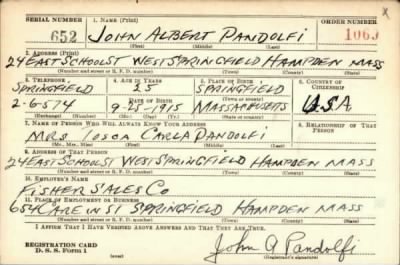 SERIAL NUMBER 1. NAME (Print) ORDER NUMBER
652 JOHN ALBERT PANDOLFI 1069
(First) (Middle) (Last)
2. ADDRESS (Print)
24 EAST SCHOOL ST WEST SPRINGFIELD HAMPDEN MASS
(Number and street or R. F. D. number) (Town) (County) (State)
3. TELEPHONE 4. AGE IN YEARS 5. PLACE OF BIRTH 6. COUNTRY OF CITIZENSHIP
SPRINGFIELD 25 SPRINGFIELD
DATE OF BIRTH (Town or county)
2-6574 9-25-1915 MASSACHUSETTS U.S.A
(Exchange) (Number) (Mo.) (Day) (Yr.) (State or country)
7. NAME OF PERSON WHO WILL ALWAYS KNOW YOUR ADDRESS 8. RELATIONSHIP OF THAT PERSON
MRS CARLA PANDOLFI
(Mr., Mrs., Miss) (First) (Middle) (Last)
9. ADDRESS OF THAT PERSON
24 EAST SCHOOL ST WEST SPRINGFIELD HAMPDEN MASS
(Number and street or R. F. D. number) (Town) (County) (State)
10. EMPLOYER'S NAME
FISHER SALES CO
11. PLACE OF EMPLOYMENT OR BUSINESS
ST SPRINGFIELD HAMPDEN MASS
(Number and street or R. F. D. number) (Town) (County) (State)
I AFFIRM THAT I HAVE VERIFIED ABOVE ANSWERS AND THAT THEY ARE TRUE.
REGISTRATION CARD
D. S. S. Form 1 John A Pandolfi
(Registrant's signature)